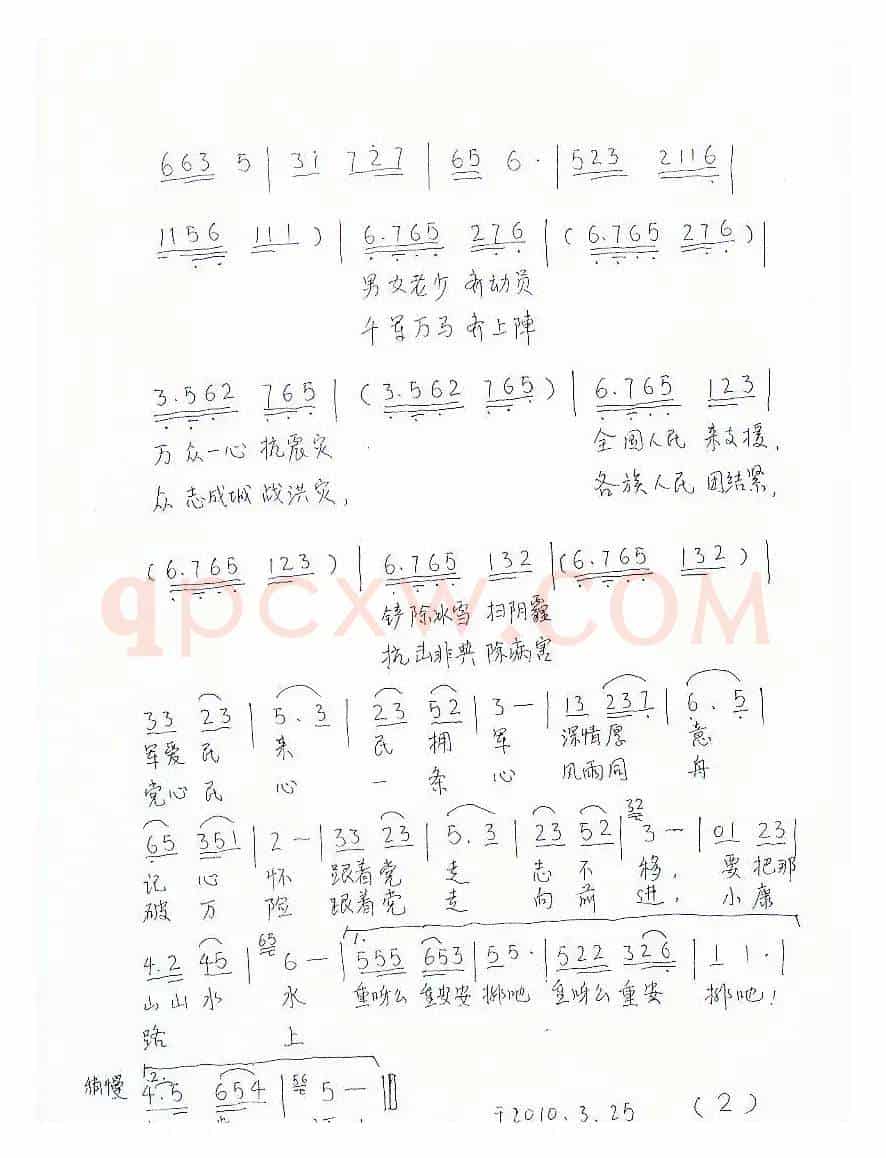 663 5 | 3i 727 | 65 6 · | 523 2116 |
1156 111 ) | 6.765 276 | ( 6.765 276 ) |
男女老少 齐动员
千军万马 齐上陣
3.562 765 | ( 3.562 765 ) | 6.765 123 |
万众一心 抗震灾 全国人民 来支援,
众志成城 战洪灾, 各族人民 团结紧,
( 6.765 123 ) | 6.765 132 | ( 6.765 132 ) |
qpcxw.COM
铲除冰雪 扫阴霾
抗击非典 除病害
33 23 | 5.3 | 23 52 | 3 — | 13 237 | 6.5 |
军爱民 来 民 拥 军 深情厚 意
党心民 心 一 条 心 风雨同 舟
65 351 | 2 — | 33 23 | 5.3 | 23 52 | 32 3 — | 01 23 |
记 心 怀 跟着党 走 志 不 移, 要把那
破 万 险 跟着党 走 向 前 进, 小康
4.2 45 | 65 6 — | 1. 555 653 | 55· | 522 326 | 1 1· |
山山水 水 重呀么 重安安 排吧 重呀么重安 排吧!
路 上
稍慢 2. 4.5 654 | 56 5 — ‖
于2010.3.25 (2)